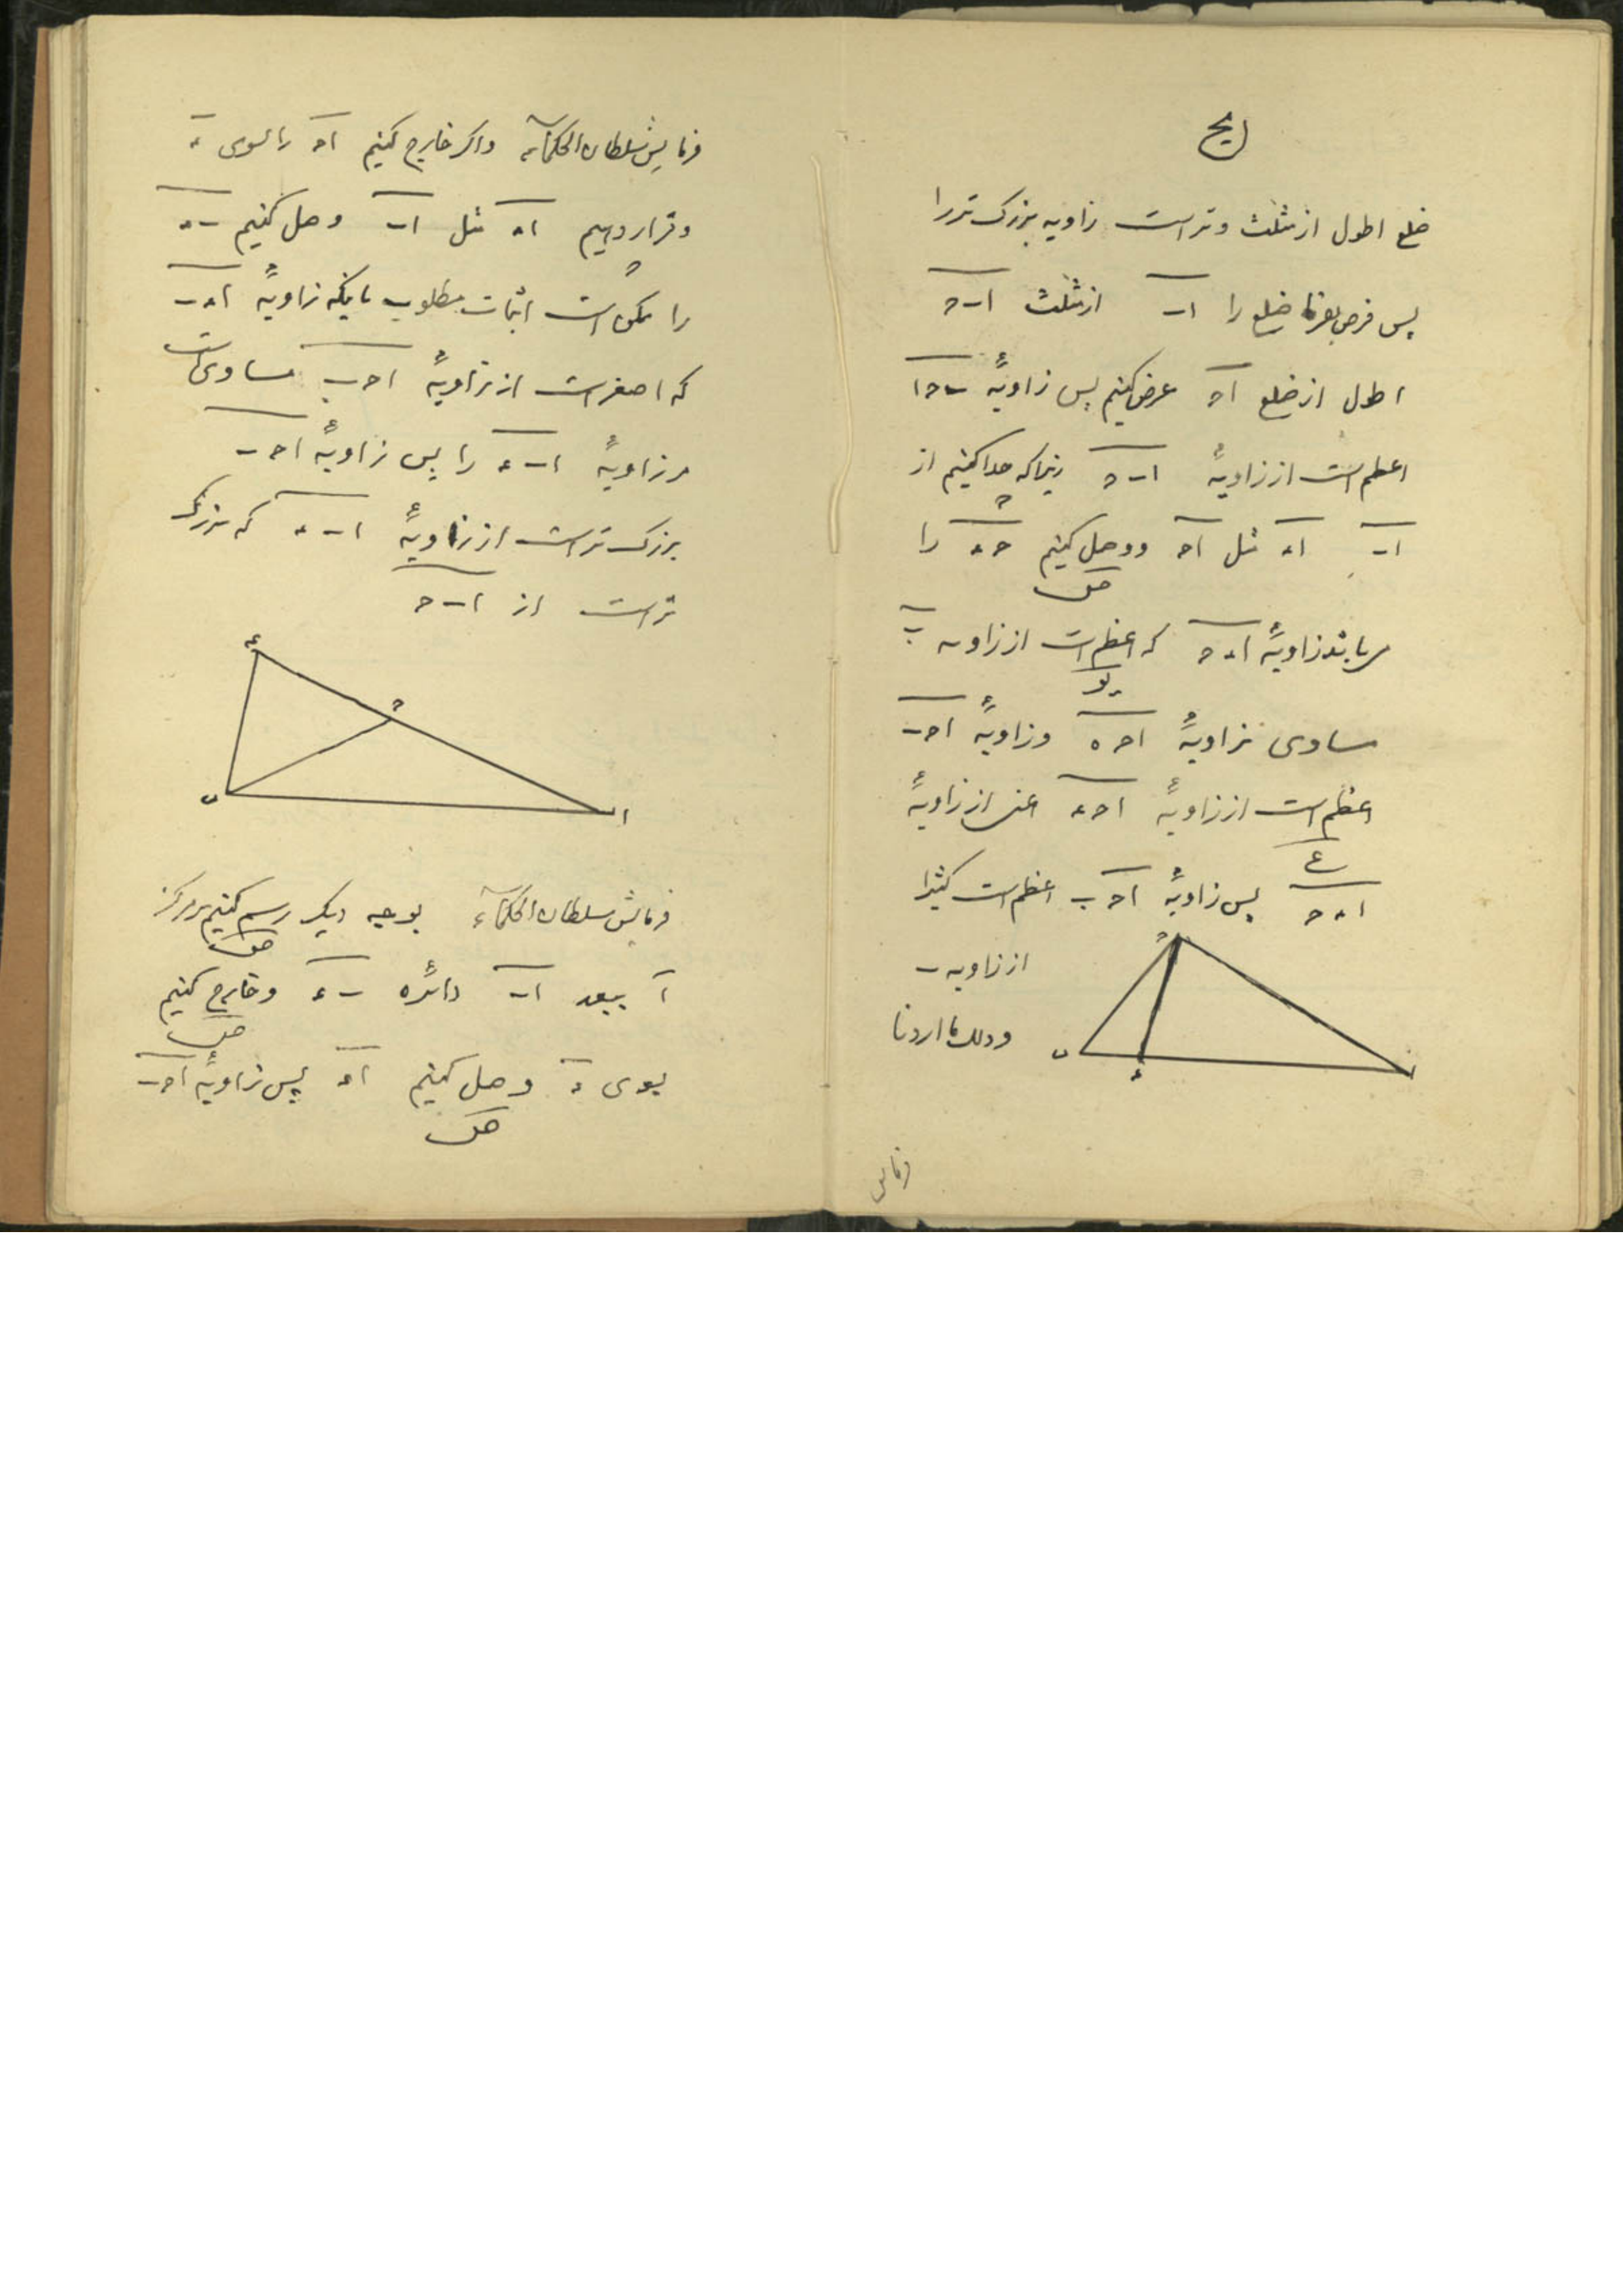 یح
ضلع اطول از مثلث وتر است زاویه بزرک تر را
پس فرض بفرما ضلع را اب از مثلث ا ب ح
اطول از ضلع اح عرض کنیم پس زاویهٔ ب ح ا
اعظم است از زاویهٔ ا ب ح زیرا که جدا کنیم از
اب اء مثل اح و وصل کنیم ح ء را
زاویهٔ ا ء ح که اعظم است از زاویه ب
یو
مساوی زاویهٔ ا ح ه و زاویهٔ ا ح ب
اعظم است از زاویهٔ ا ح ء اعنی از زاویهٔ
ا ء ح پس زاویهٔ ا ح ب اعظم است کثیرا
از زاویه ب
وذلک ما اردنا
ح
ب
ء
ا
فرمایش
فرمایش سلطان الحکماء و اکر خارج کنیم اح را بسوی ء
و قرار دهیم اء مثل اب وصل کنیم ب ء
را ممکن است اثبات مطلوب باینکه زاویهٔ ا ء ب
که اصغر است از زاویهٔ ا ح ب مساوی است
مر زاویهٔ ا ب ء را پس زاویهٔ ا ح ب
بزرک تر است از زاویهٔ ا ب ء که بزرک
تر است از ا ب ح
ء
ح
ب
ا
فرمایش سلطان الحکماء بوجه دیکر رسم کنیم بر مرکز
ا ببعد اب دائره ب ء و خارج کنیم
بسوی ء وصل کنیم اء پس زاویهٔ ا ح ب